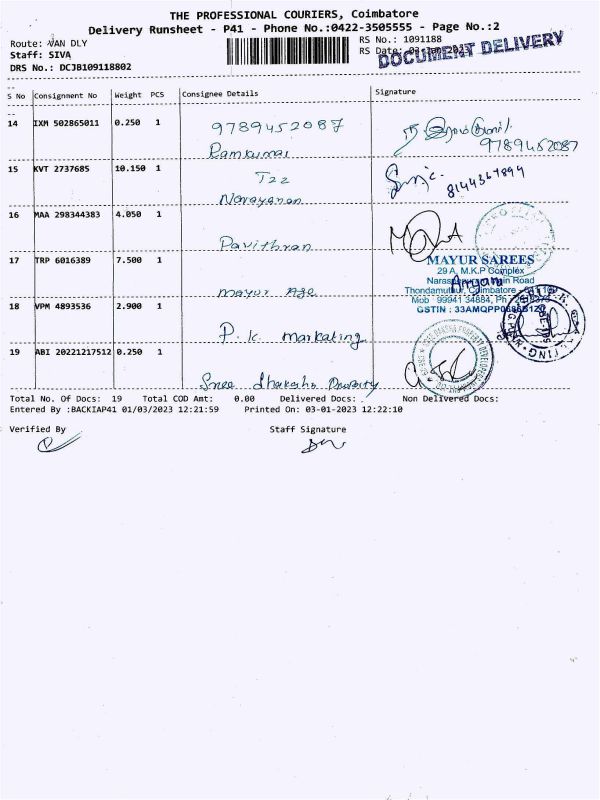 THE PROFESSIONAL COURIERS, Coimbatore
Delivery Runsheet - P41 - Phone No.:0422-3505555 - Page No.:2
Route: VAN DLY
RS No.: 1091188
Staff: SIVA
RS Date: 03-Jan-2023
DOCUMENT DELIVERY
DRS No.: DCJB109118802
S No Consignment No Weight PCS Consignee Details Signature
14 IXM 502865011 0.250 1 9789452087
Ramkumar 9789452087
15 KVT 2737685 10.150 1 T22
Narayanan 8144367894
16 MAA 298344383 4.050 1
Pavithran
17 TRP 6016389 7.500 1
mayur Age
MAYUR SAREES
29 A, M.K.P Complex
Main Road
Thondamuthur, Coimbatore
Mob : 99941 34884, Ph
GSTIN : 33AMQPP
18 VPM 4893536 2.900 1
P. k. marketing
19 ABI 20221217512 0.250 1
Sree dhaksha
Total No. Of Docs: 19 Total COD Amt: 0.00 Delivered Docs: Non Delivered Docs:
Entered By :BACKIAP41 01/03/2023 12:21:59 Printed On: 03-01-2023 12:22:10
Verified By Staff Signature